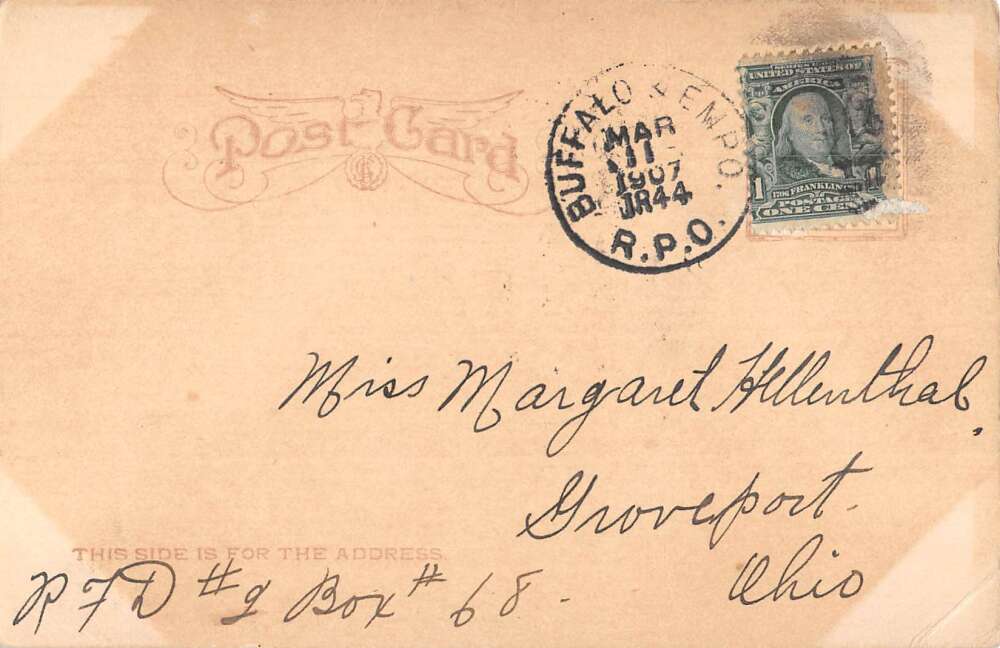 Post Card
BUFFALO & EMPO.
MAR
11
1907
JR44
R.P.O.
UNITED STATES OF
AMERICA
1
1706 FRANKLIN
POSTAGE
ONE CENT
Miss Margaret Hellenthal,
Groveport.
Ohio
THIS SIDE IS FOR THE ADDRESS.
R F D #2 Box # 68.